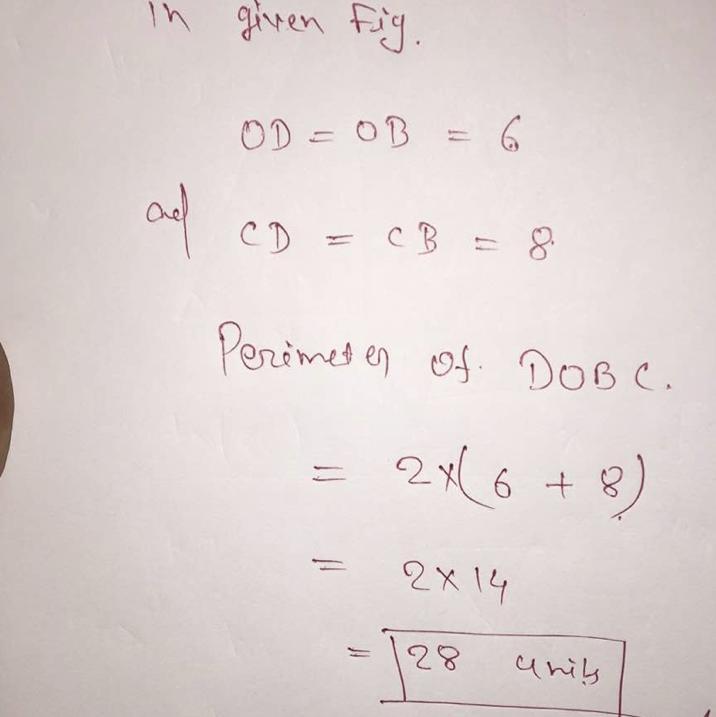 In given Fig.
OD = OB = 6
and CD = CB = 8
Perimeter of DOBC.
= 2×(6 + 8)
= 2×14
= 28 units